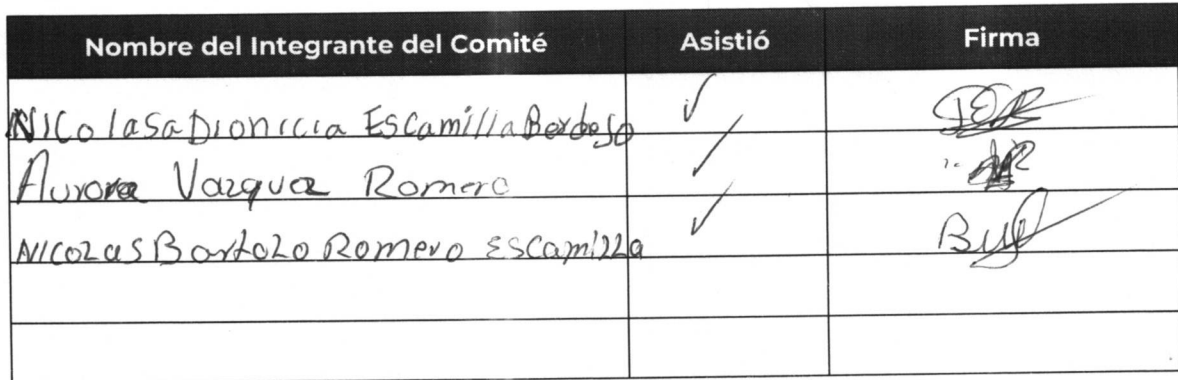 Nombre del Integrante del Comité Asistió Firma
NIColasa Dionicia Escamilla Berdejo ✓
Aurora Vazquez Romero ✓
NICOLas BartoLo Romero EscamiLLa ✓